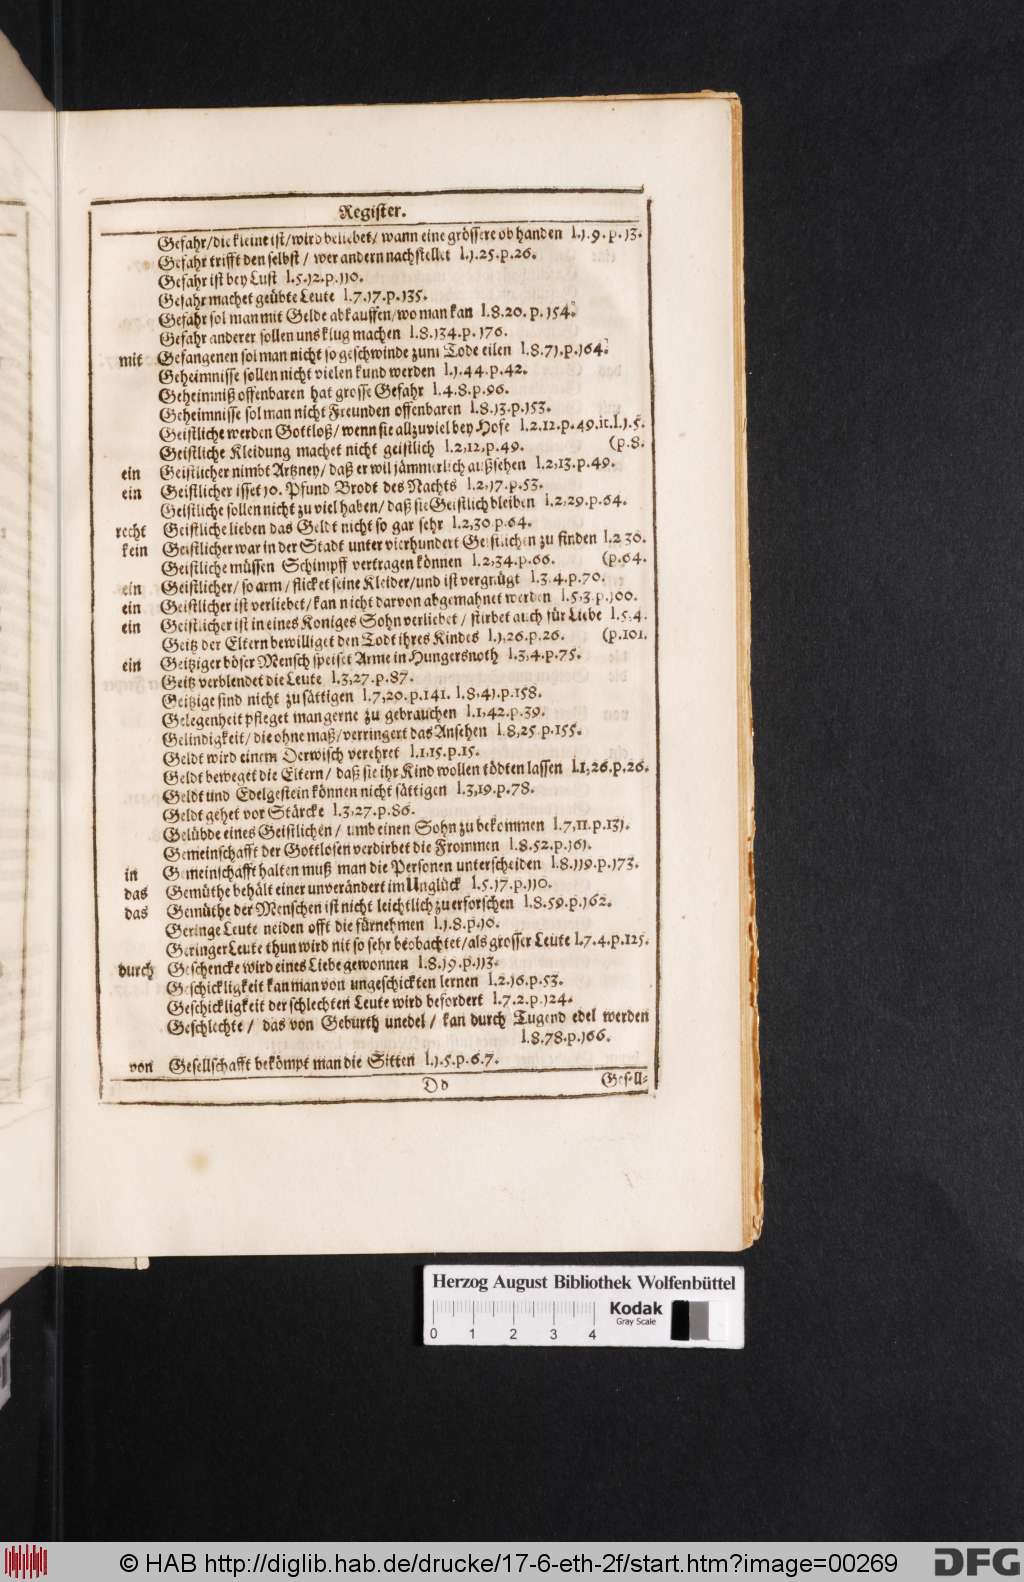 Register.
Gefahr/die kleine ist/wird beliebet/ wann eine grössere obhanden l.1.9.p.13.
Gefahr trifft den selbst / wer andern nachstellet l.1.25.p.26.
Gefahr ist bey Lust l.5.12.p.110.
Gefahr machet geübte Leute l.7.17.p.135.
Gefahr sol man mit Gelde abkauffen/wo man kan l.8.20.p.154.
Gefahr anderer sollen uns klug machen l.8.134.p.176.
mit Gefangenen sol man nicht so geschwinde zum Tode eilen l.8.71.p.164.
Geheimnisse sollen nicht vielen kund werden l.1.44.p.42.
Geheimniß offenbaren hat grosse Gefahr l.4.8.p.96.
Geheimnisse sol man nicht Freunden offenbaren l.8.13.p.153.
Geistliche werden Gottloß/ wenn sie allzuviel bey Hofe l.2.12.p.49.it.l.1.5.
Geistliche Kleidung machet nicht geistlich l.2,12,p.49. (p.8.
ein Geistlicher nimbt Artzney/ daß er wil jämmerlich außsehen l.2,13.p.49.
ein Geistlicher isset 10. Pfund Brodt des Nachts l.2,17.p.53.
Geistliche sollen nicht zu viel haben/ daß sie Geistlich bleiben l.2,29.p.64.
recht Geistliche lieben das Geldt nicht so gar sehr l.2,30 p.64.
kein Geistlicher war in der Stadt unter vierhundert Geistlichen zu finden l.2 36.
Geistliche müssen Schimpff vertragen können l.2,34.p.66. (p.64.
ein Geistlicher/ so arm / flicket seine Kleider/und ist vergnügt l.3.4.p.70.
ein Geistlicher ist verliebet/ kan nicht darvon abgemahnet werden l.5.3.p.100.
ein Geistlicher ist in eines Koniges Sohn verliebet / stirbet auch für Liebe l.5,4.
Geitz der Eltern bewilliget den Todt ihres Kindes l.1,26.p.26. (p.101.
ein Geitziger böser Mensch speiset Arme in Hungersnoth l.3,4.p.75.
Geitz verblendet die Leute l.3,27.p.87.
Geitzige sind nicht zu sättigen l.7,20.p.141. l.8,41.p.158.
Gelegenheit pfleget man gerne zu gebrauchen l.1,42.p.39.
Gelindigkeit/ die ohne maß/verringert das Ansehen l.8,25.p.155.
Geldt wird einem Derwisch verehret l.1.15.p.15.
Geldt beweget die Eltern/ daß sie ihr Kind wollen tödten lassen l.1,26.p.26.
Geldt und Edelgestein können nicht sättigen l.3,19.p.78.
Geldt gehet vor Stärcke l.3,27.p.86.
Gelübde eines Geistlichen / umb einen Sohn zu bekommen l.7,11.p.131.
Gemeinschafft der Gottlosen verdirbet die Frommen l.8.52.p.161.
in Gemeinschafft halten muß man die Personen unterscheiden l.8.119.p.173.
das Gemüthe behält einer unverändert im Unglück l.5.17.p.110.
das Gemüthe der Menschen ist nicht leichtlich zu erforschen l.8.59.p.162.
Geringe Leute neiden offt die fürnehmen l.1.8.p.10.
Geringer Leute thun wird nit so sehr beobachtet/als grosser Leute l.7.4.p.125.
durch Geschencke wird eines Liebe gewonnen l.8.19.p.113.
Geschickligkeit kan man von ungeschickten lernen l.2.16.p.53.
Geschickligkeit der schlechten Leute wird befordert l.7.2.p.124.
Geschlechte / das von Geburth unedel / kan durch Tugend edel werden
l.8.78.p.166.
von Gesellschafft bekömpt man die Sitten l.1.5.p.6.7.
Dd Gesell-
Herzog August Bibliothek Wolfenbüttel
Kodak
Gray Scale
0 1 2 3 4
© HAB http://diglib.hab.de/drucke/17-6-eth-2f/start.htm?image=00269
DFG